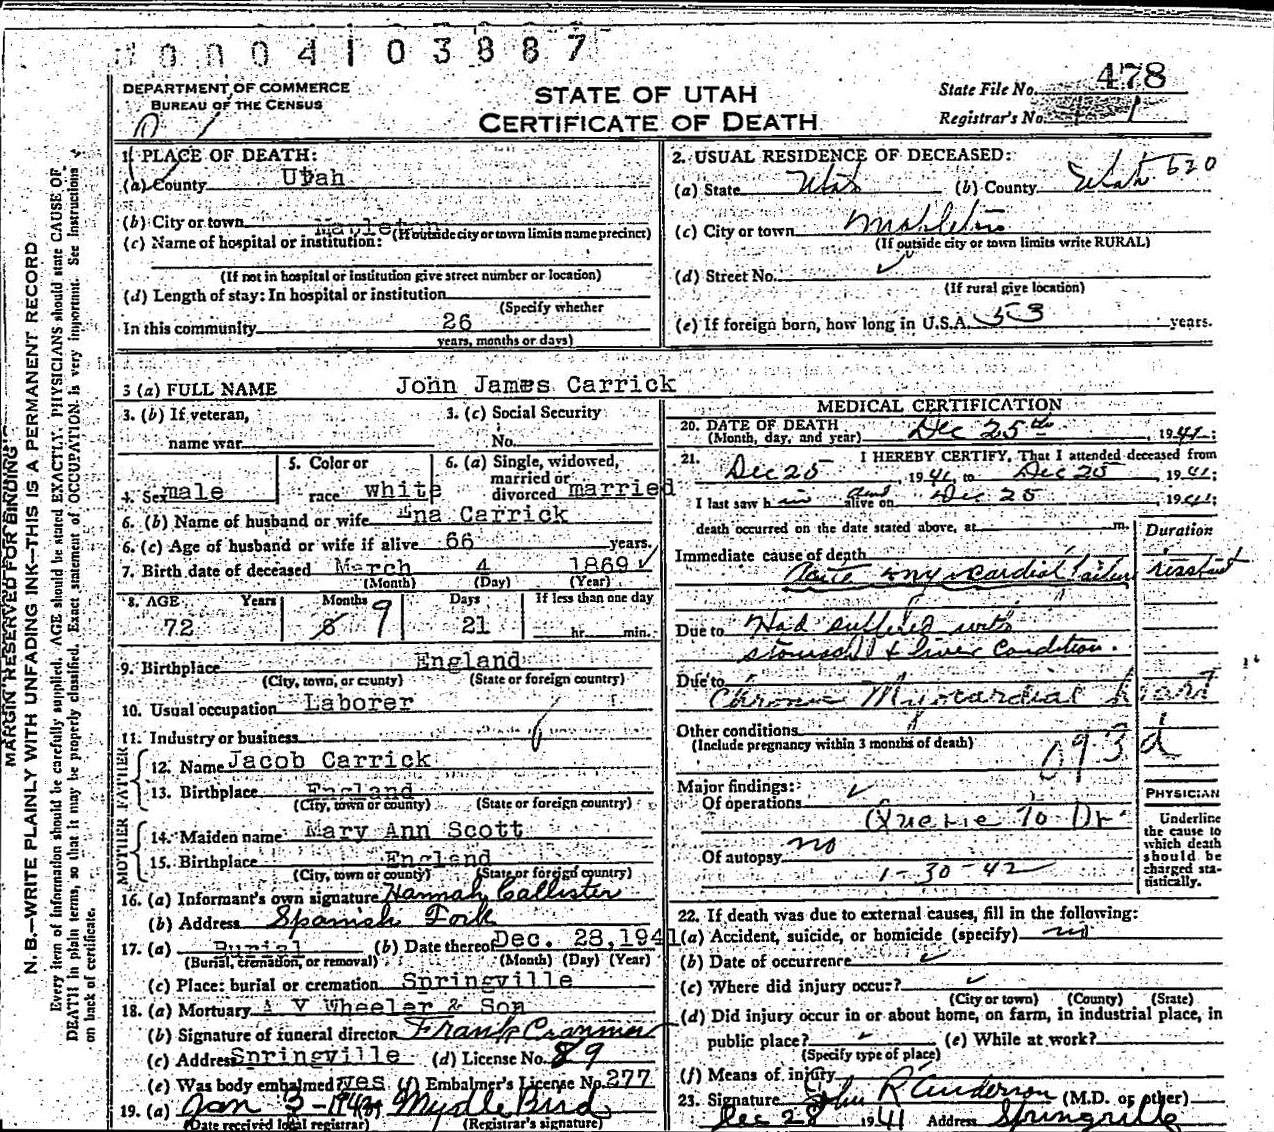 0004103887
DEPARTMENT OF COMMERCE
BUREAU OF THE CENSUS
STATE OF UTAH
CERTIFICATE OF DEATH
State File No. 478
Registrar's No.
1. PLACE OF DEATH:
(a) County Utah
(b) City or town Mapleton
(If outside city or town limits name precinct)
(c) Name of hospital or institution:
(If not in hospital or institution give street number or location)
(d) Length of stay: In hospital or institution
(Specify whether
In this community 26
years, months or days)
2. USUAL RESIDENCE OF DECEASED:
(a) State Utah (b) County Utah 620
(c) City or town Mapleton
(If outside city or town limits write RURAL)
(d) Street No.
(If rural give location)
(e) If foreign born, how long in U.S.A. 53 years.
3 (a) FULL NAME John James Carrick
3. (b) If veteran,
name war
3. (c) Social Security
No.
4. Sex male
5. Color or
race white
6. (a) Single, widowed,
married or
divorced married
6. (b) Name of husband or wife Ena Carrick
6. (c) Age of husband or wife if alive 66 years.
7. Birth date of deceased March 4 1869
(Month) (Day) (Year)
8. AGE Years Months Days If less than one day
72 8 9 21 hr. min.
9. Birthplace England
(City, town, or county) (State or foreign country)
10. Usual occupation Laborer
11. Industry or business
FATHER
12. Name Jacob Carrick
13. Birthplace England
(City, town or county) (State or foreign country)
MOTHER
14. Maiden name Mary Ann Scott
15. Birthplace England
(City, town or county) (State or foreign country)
16. (a) Informant's own signature Hannah Callister
(b) Address Spanish Fork
17. (a) Burial (b) Date thereof Dec. 28, 1941
(Burial, cremation, or removal) (Month) (Day) (Year)
(c) Place: burial or cremation Springville
18. (a) Mortuary A V Wheeler & Son
(b) Signature of funeral director Frank Cranmer
(c) Address Springville (d) License No. 89
(e) Was body embalmed? yes (f) Embalmer's License No. 277
19. (a) Jan 3 - 1942 Myrtle Bird
(Date received local registrar) (Registrar's signature)
MEDICAL CERTIFICATION
20. DATE OF DEATH
(Month, day, and year) Dec 25th, 1941;
21. I HEREBY CERTIFY, That I attended deceased from
Dec 25, 1941, to Dec 25, 1941;
I last saw him alive on Dec 25, 1941;
death occurred on the date stated above, at m.
Duration
Immediate cause of death
Acute myocardial failure
Due to Had suffered with
stomach & liver condition.
Due to
Chronic Myocardial heart
Other conditions
(Include pregnancy within 3 months of death)
093d
Major findings:
Of operations
Querie To Dr.
Of autopsy no
1-30-42
PHYSICIAN
Underline
the cause to
which death
should be
charged sta-
tistically.
22. If death was due to external causes, fill in the following:
(a) Accident, suicide, or homicide (specify) no
(b) Date of occurrence
(c) Where did injury occur?
(City or town) (County) (State)
(d) Did injury occur in or about home, on farm, in industrial place, in
public place? (e) While at work?
(Specify type of place)
(f) Means of injury
23. Signature John R Anderson (M.D. or other)
Dec 28 1941 Address Springville
MARGIN RESERVED FOR BINDING
N. B.—WRITE PLAINLY WITH UNFADING INK—THIS IS A PERMANENT RECORD
Every item of information should be carefully supplied. AGE should be stated EXACTLY. PHYSICIANS should state CAUSE OF
DEATH in plain terms, so that it may be properly classified. Exact statement of OCCUPATION is very important. See Instructions
on back of certificate.